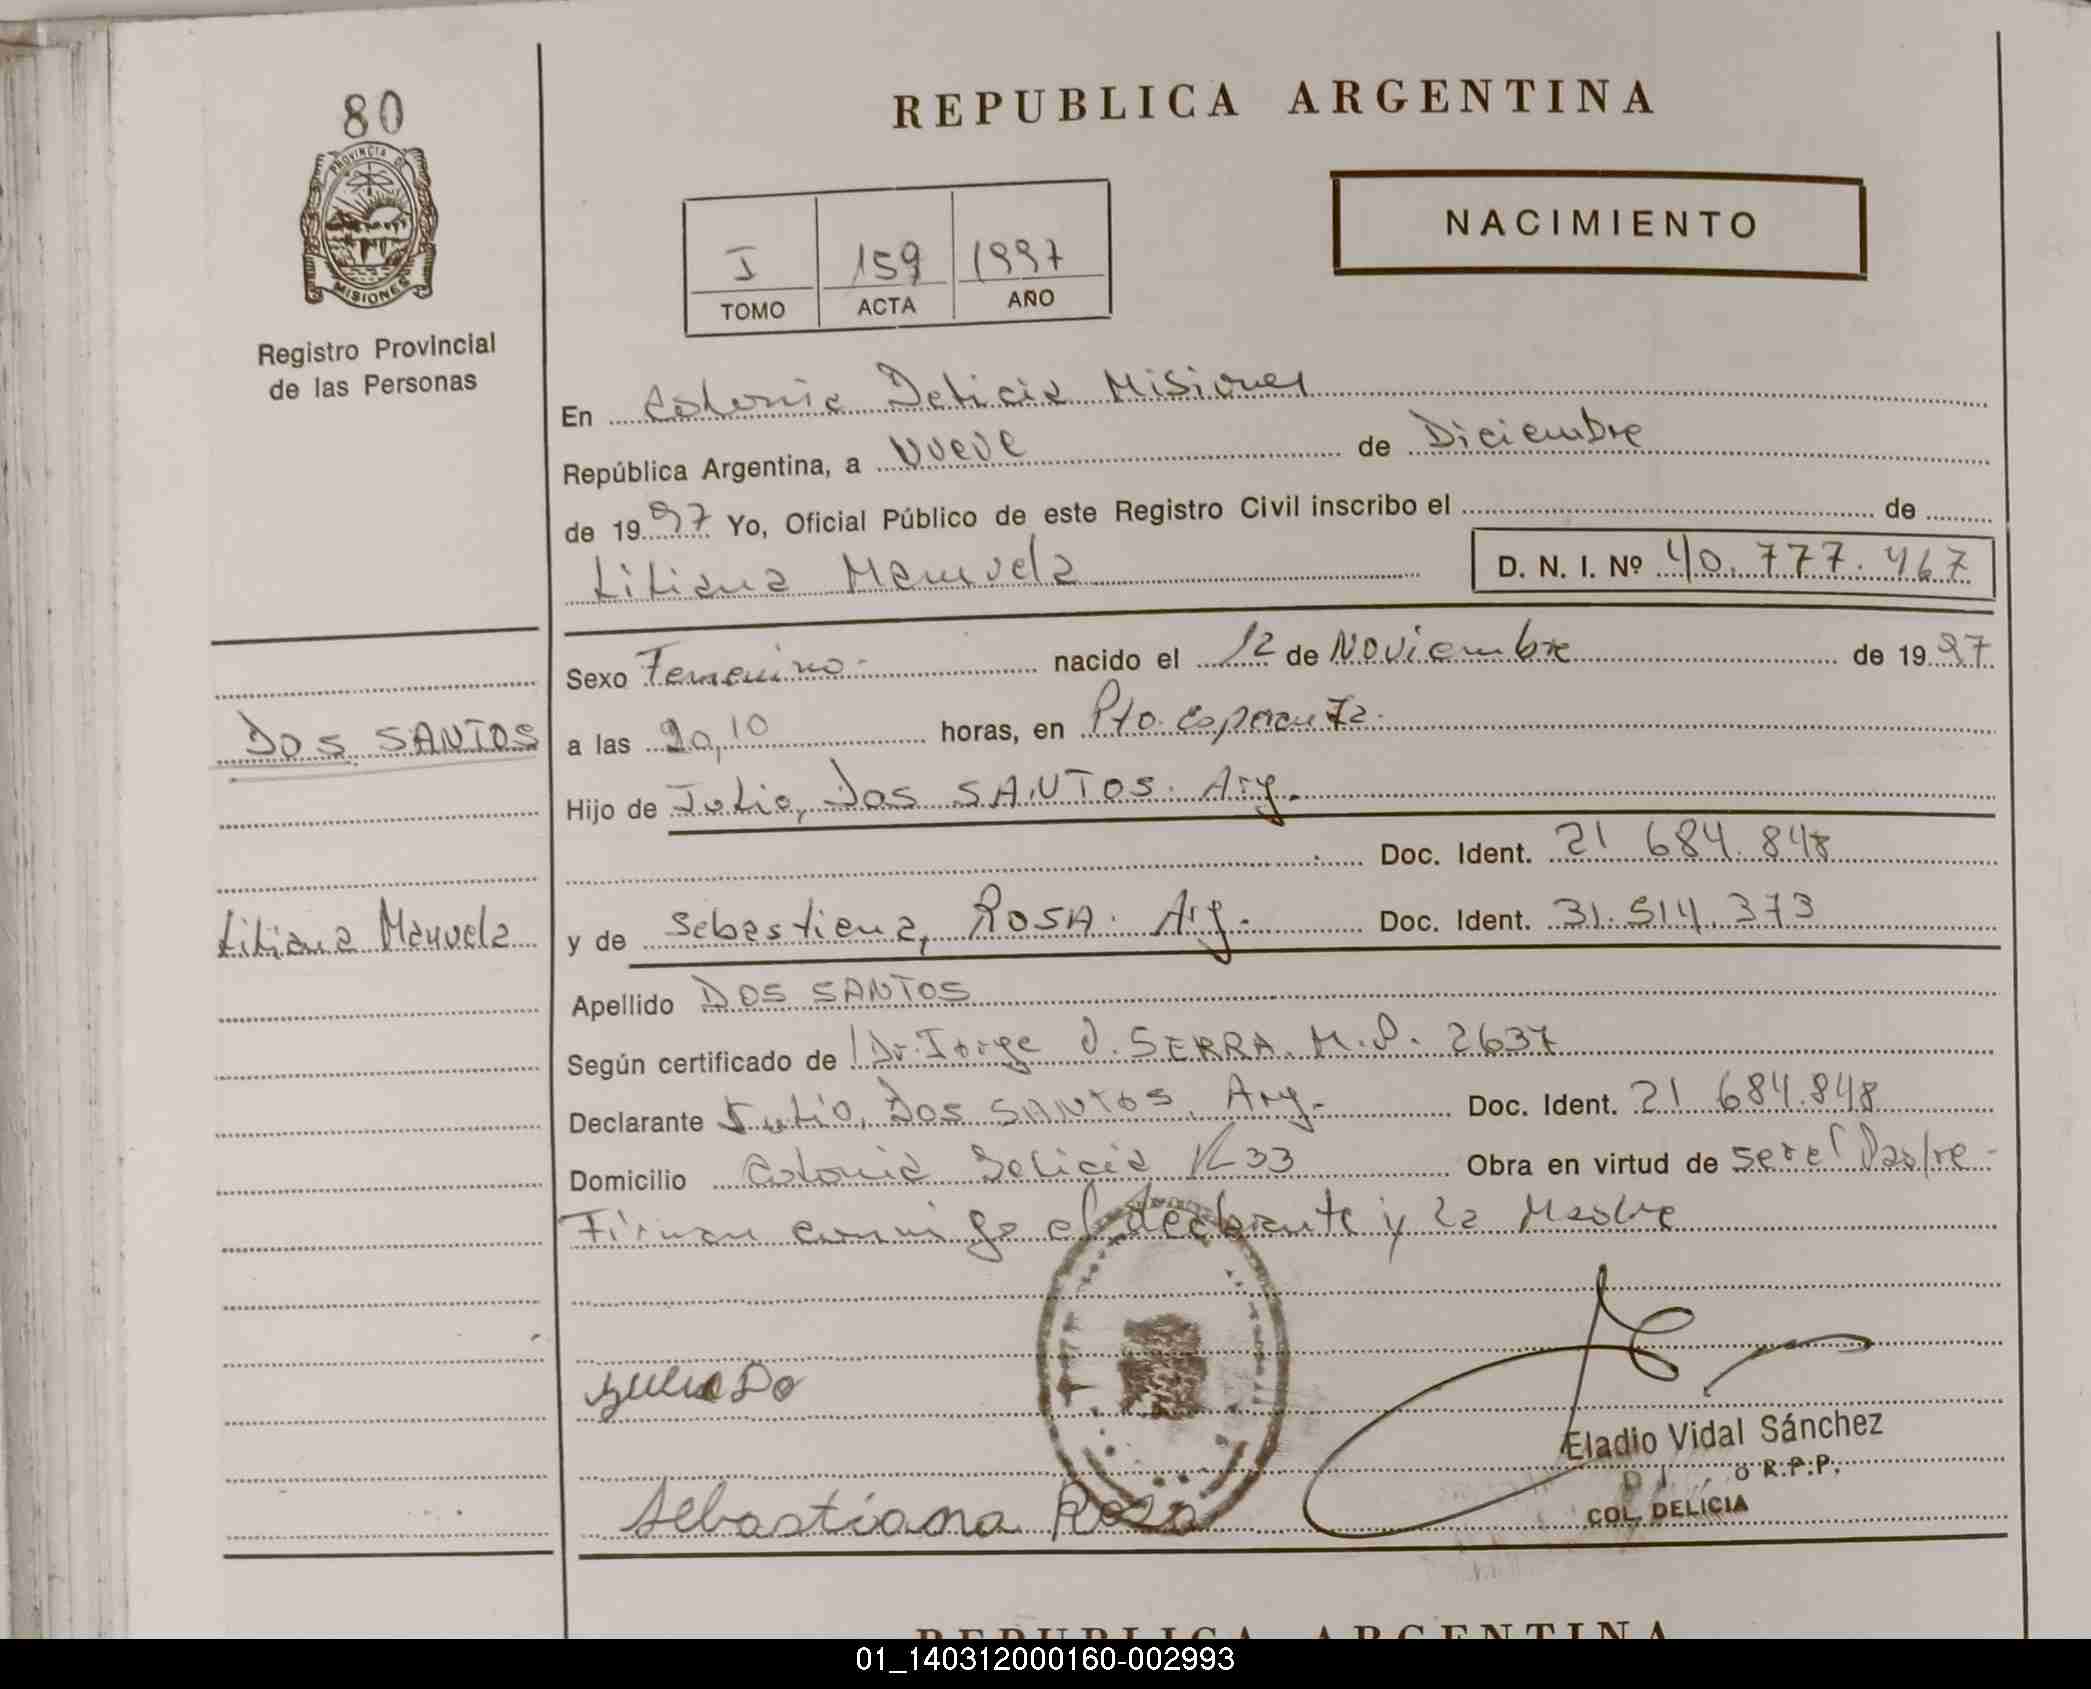 80
PROVINCIA DE
MISIONES
Registro Provincial
de las Personas
REPUBLICA ARGENTINA
NACIMIENTO
I 159 1997
TOMO ACTA AÑO
En Colonia Delicia Misiones
República Argentina, a Nueve de Diciembre
de 1997 Yo, Oficial Público de este Registro Civil inscribo el de
Liliana Manuela D. N. I. Nº 40.777.467
Sexo Femenino.- nacido el 12 de Noviembre de 1997
a las 20,10 horas, en Pto. Esperanza.
DOS SANTOS
Hijo de Julio, Dos SANTOS. Arg.
Doc. Ident. 21 684.848
Liliana Manuela
y de Sebastiana, ROSA. Arg.- Doc. Ident. 31.514.373
Apellido DOS SANTOS
Según certificado de Dr. Jorge J. SERRA. M.P. 2637
Declarante Julio, Dos SANTOS. Arg.- Doc. Ident. 21 684.848
Domicilio Colonia Delicia K 33 Obra en virtud de ser el Padre-
Firman conmigo el declarante y la Madre
Julio Do
Eladio Vidal Sánchez
R.P.P.
COL. DELICIA
Sebastiana Rosa
REPUBLICA ARGENTINA
01_140312000160-002993